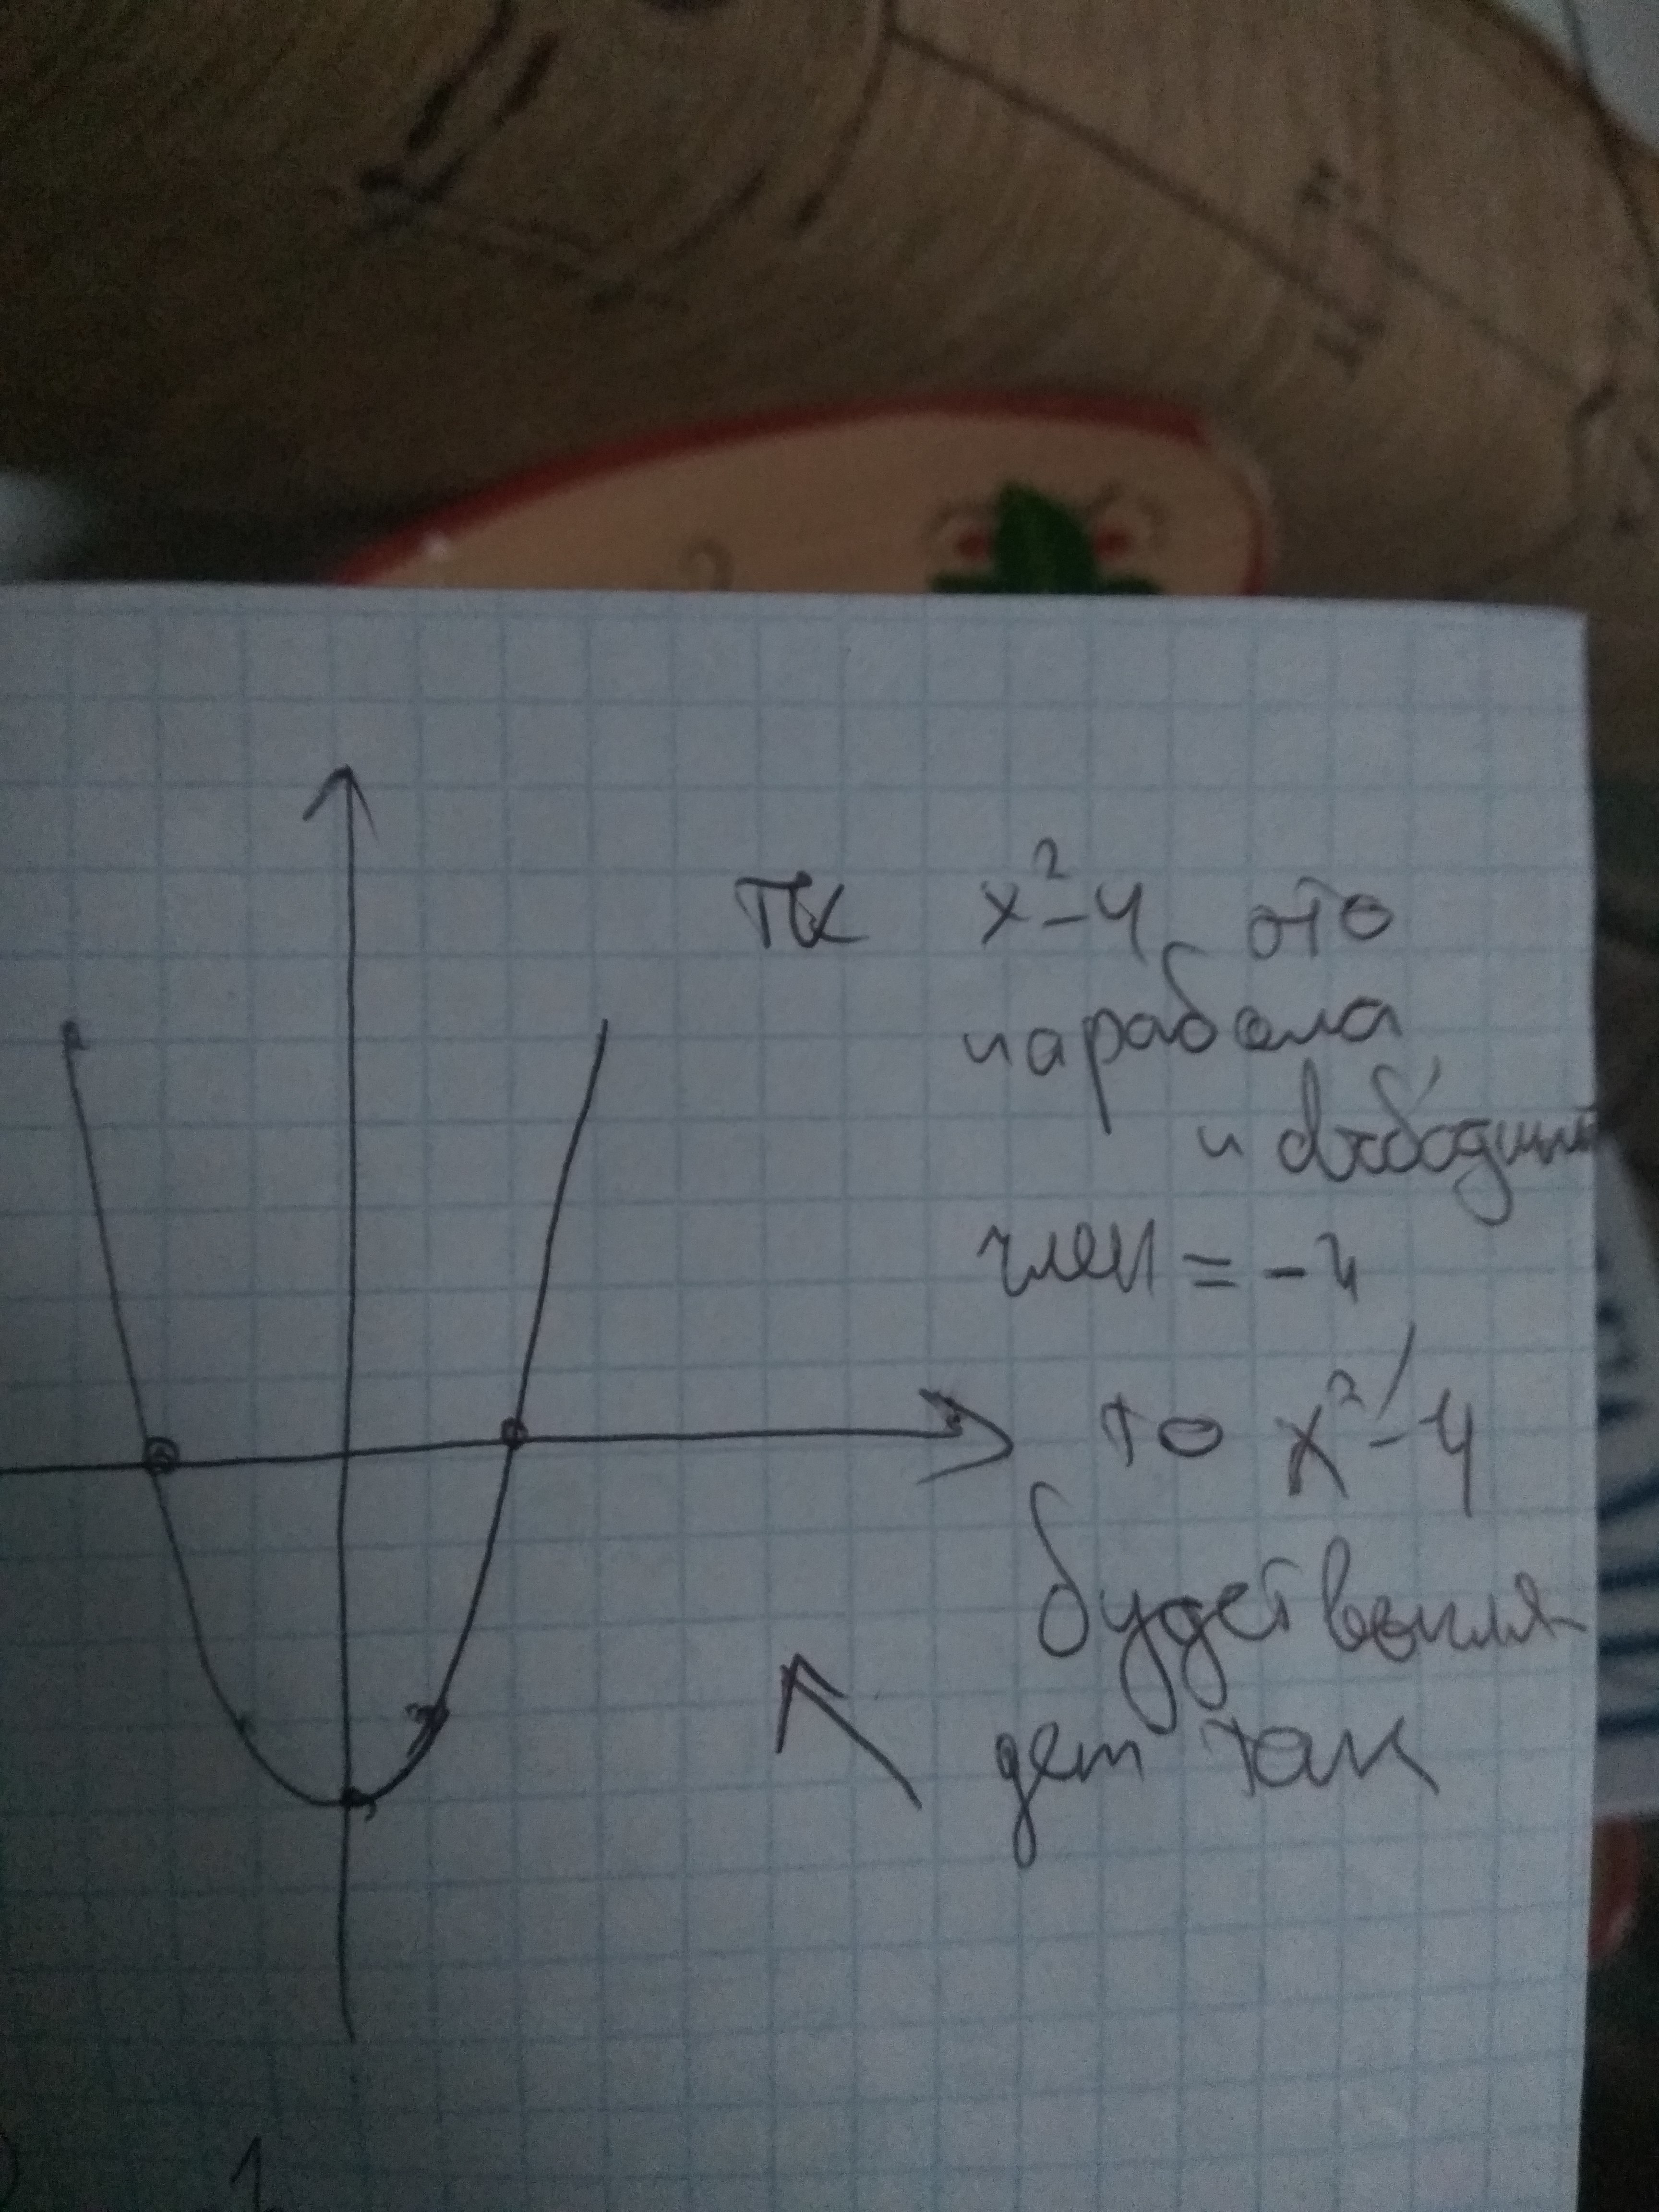 тк x²-4 это
парабола
и свободный
член = -4
то x²-4
будет выгля
деть так
1